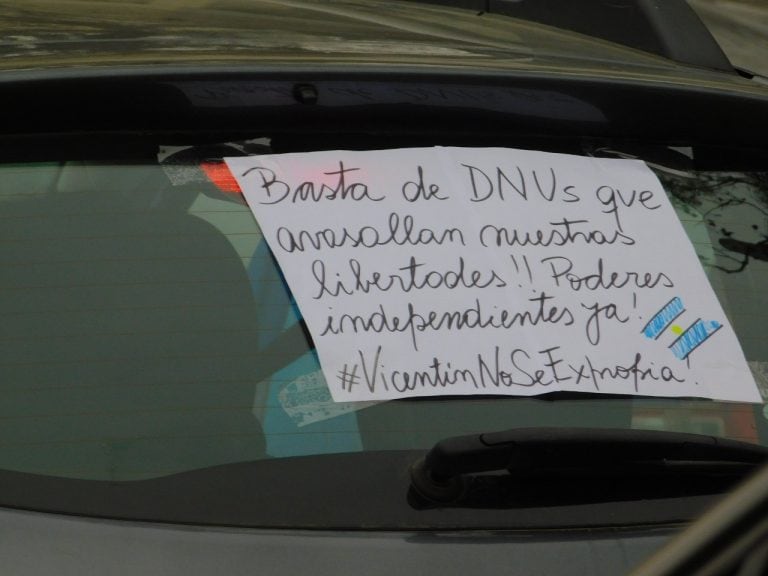 Basta de DNUs que
avasallan nuestras
libertades!! Poderes
independientes ya!
#VicentinNoSeExpropia!